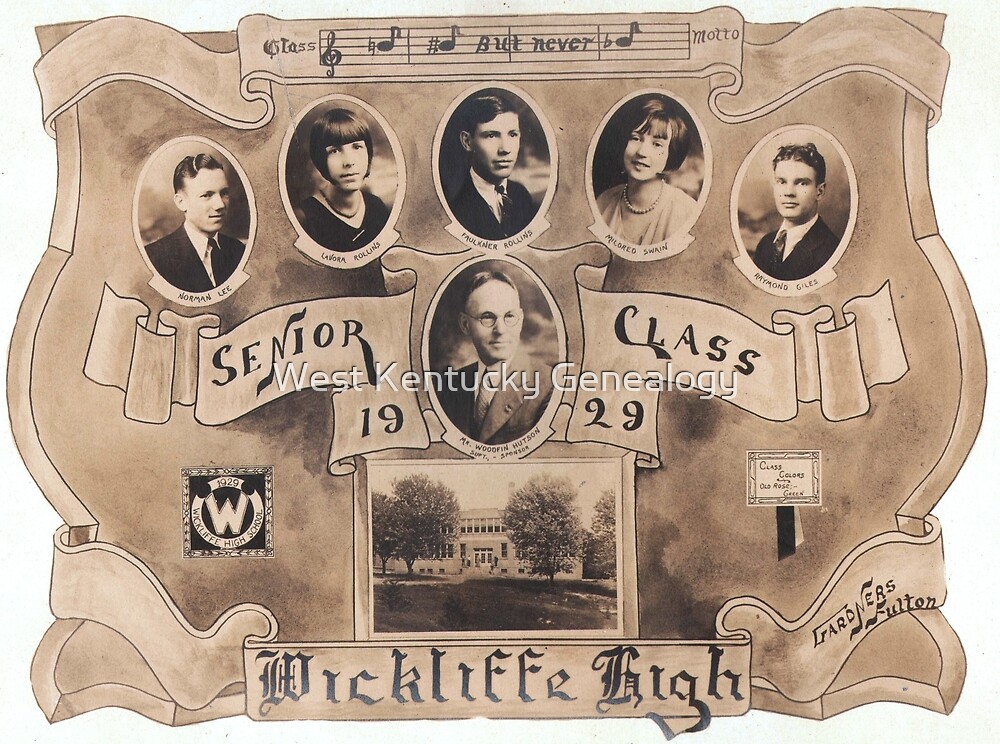 Class ♮♪ #♪ But never ♭♪ Motto
NORMAN LEE
LAVORA ROLLINS
FAULKNER ROLLINS
MILDRED SWAIN
RAYMOND GILES
SENIOR CLASS
19 29
MR. WOODFIN HUTSON
SUPT. - SPONSOR
West Kentucky Genealogy
1929
W
WICKLIFFE HIGH SCHOOL
CLASS
COLORS
OLD ROSE:-
GREEN
GARDNERS
Fulton
Wickliffe High